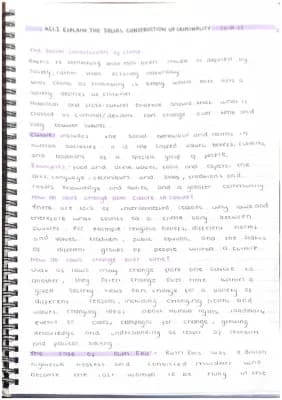 AC1.1 EXPLAIN THE SOCIAL CONSTRUCTION OF CRIMINALITY
The social construction of crime
society, rather than existing naturally
What counts as criminality is simply what acts
society defines as criminal.
Historical and cross-cultural evidence shows that what is
classed as criminal/deviant can change over time and
vary between cultures.
Culture: includes the social behaviour and norms in
human societies - it is the shared values, beliefs, customs,
and traditions of a specific group of people.
Examples: food and drink, music, rules and
arts, language, and laws, traditions and
rituals, knowledge and a greater community
How do laws change from culture to culture?
There are lots of interrelated reasons why laws and
therefore what counts as a crime vary between
cultures. For example religious beliefs, different norms
and values, tradition, public opinion, and the
of different groups of people within a culture.
How do laws change over time?
Just as laws may change from one culture to
another, they often change over time within a
given society. Laws can change for a variety of
different reasons, including changing norms and
values, changing ideas about human rights, landmark
events or cases, campaigns for change, growing
knowledge and understanding as result of research
and
The case of Ruth Ellis - Ruth Ellis was a British
nightclub hostess and convicted murderer who
became the last woman to be hung in the